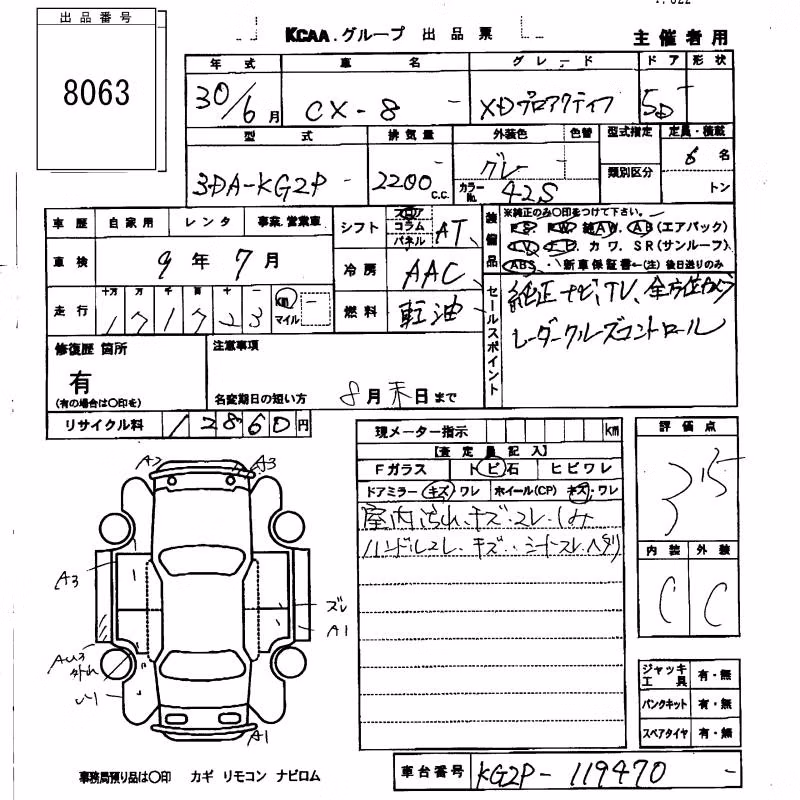 出品番号
8063
KCAA.グループ 出品票
主催者用
年式 車名 グレード ドア 形状
30/6月 CX-8 - XDプロアクティブ 5D -
型式 排気量 外装色 色替 型式指定 定員・積載
3DA-KG2P - 2200 c.c. グレー - 6名
カラーNo. 42S 類別区分 トン
車歴 自家用 レンタ 事業.営業車
シフト フロア コラム パネル AT
装備品 ※純正のみ〇印をつけて下さい。
PS PW 純AW. AB(エアバック)
TV. ナビ. カワ. SR(サンルーフ)
ABS. 新車保証書←(注)後日送りのみ
車検 9年7月
冷房 AAC
走行 十万 万 千 百 十 一
171723 km マイル -
燃料 軽油
セールスポイント 純正ナビ、TV、全方位カメラ
レーダークルーズコントロール
修復歴 箇所
有
(有の場合は〇印を)
注意事項
名変期日の短い方 8月末日まで
リサイクル料 12860円
現メーター指示 km
【査定員記入】
Fガラス トビ石 ヒビワレ
ドアミラー キズ ワレ ホイール(CP) キズ・ワレ
室内汚れ.キズ.スレ.しみ
ハンドルスレ.キズ..シートスレ.ヘタリ
評価点
3.5
内装 外装
C C
A2 A3
A3
ズレ
A1
AU3
外れ
A1
ジャッキ工具 有・無
パンクキット 有・無
スペアタイヤ 有・無
事務局預り品は〇印 カギ リモコン ナビロム
車台番号 KG2P-119470 -